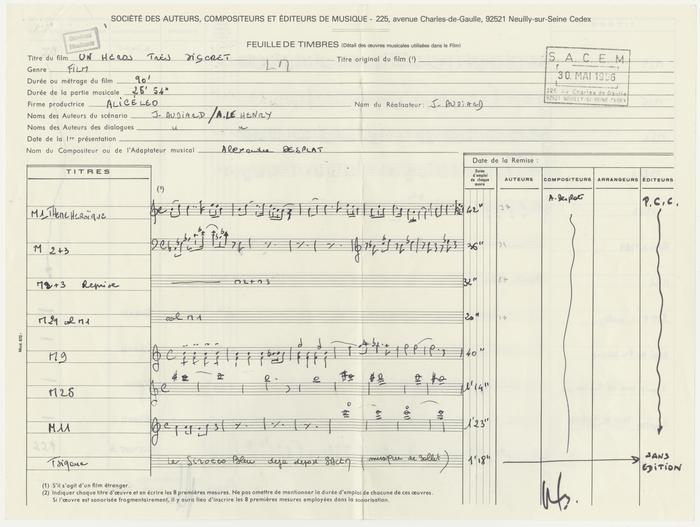 SOCIÉTÉ DES AUTEURS, COMPOSITEURS ET ÉDITEURS DE MUSIQUE - 225, avenue Charles-de-Gaulle, 92521 Neuilly-sur-Seine Cedex
FEUILLE DE TIMBRES (Détail des œuvres musicales utilisées dans le Film)
Titre du film UN HEROS TRES DISCRET Titre original du film (¹)
Genre FILM
S A C E M
30. MAI 1996
225 av. Charles de Gaulle
92521 NEUILLY-SUR-SEINE CEDEX
Durée ou métrage du film 90'
Durée de la partie musicale 25' 54"
Firme productrice ALICELEO Nom du Réalisateur: J. AUDIARD
Noms des Auteurs du scénario J. AUDIARD / A. LE HENRY
Noms des Auteurs des dialogues " "
Date de la 1re présentation
Nom du Compositeur ou de l'Adaptateur musical Alexandre DESPLAT
Date de la Remise :
TITRES
Durée d'emploi de chaque œuvre
AUTEURS COMPOSITEURS ARRANGEURS ÉDITEURS
(²)
M1 THEME HEROÏQUE 42" A. Desplat P.C.C.
M 2+3 36"
M2+3 Reprise M2+M3 32"
M29 ol M1 ol M1 20"
M9 40"
M28 1'14"
M11 1'23"
Tzigane Le Sirocco Bleu deja déposé SACEM (musique de ballet) 1'18" SANS EDITION
(1) S'il s'agit d'un film étranger.
(2) Indiquer chaque titre d'œuvre et en écrire les 8 premières mesures. Ne pas omettre de mentionner la durée d'emploi de chacune de ces œuvres.
Si l'œuvre est sonorisée fragmentairement, il y aura lieu d'inscrire les 8 premières mesures employées dans la sonorisation.